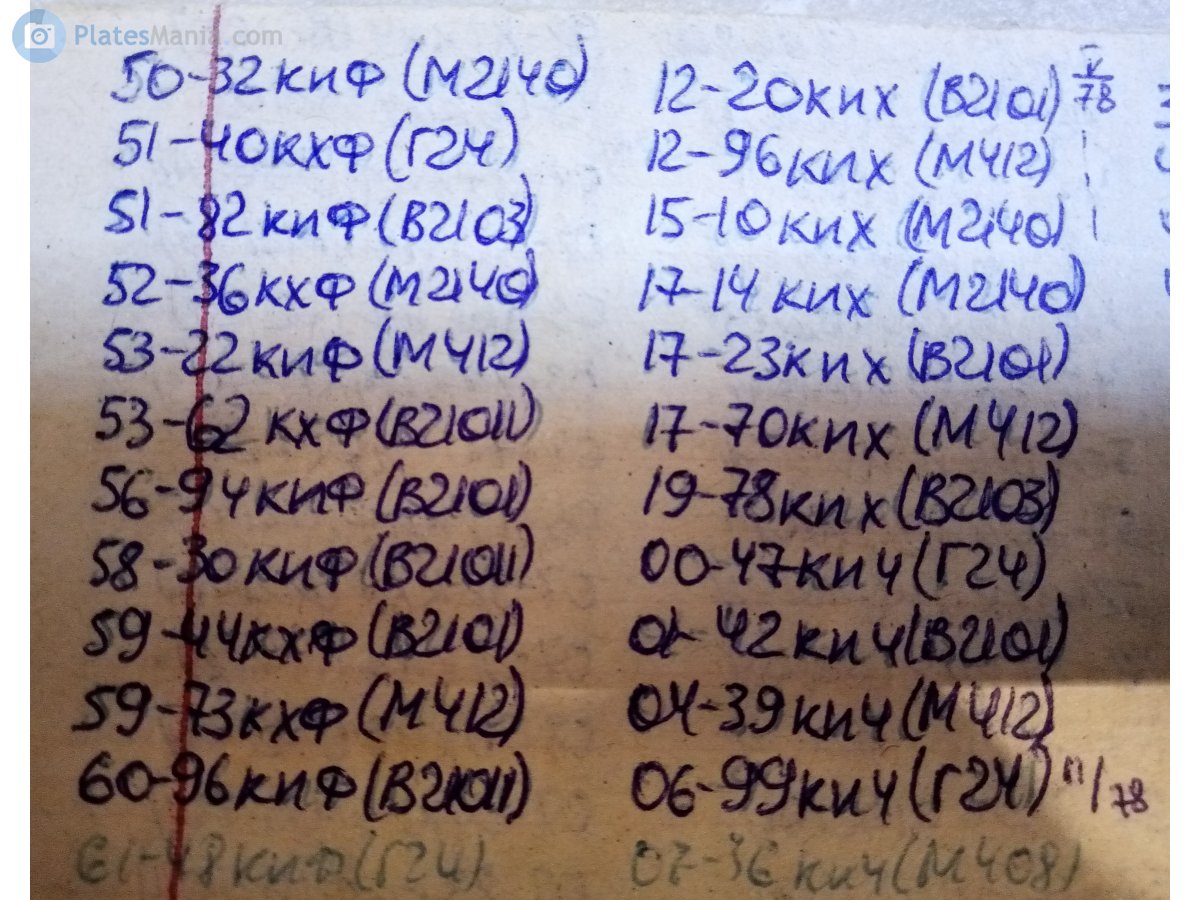 PlatesMania.com
50-32 киф (М2140)
51-40 кхф (Г24)
51-82 киф (В2103)
52-36 кхф (М2140)
53-22 киф (М412)
53-62 кхф (В21011)
56-94 киф (В2101)
58-30 киф (В21011)
59-44 кхф (В2101)
59-73 кхф (М412)
60-96 киф (В21011)
61-48 киф (Г24)
12-20 ких (В2101)
12-96 ких (М412)
15-10 ких (М2140)
17-14 ких (М2140)
17-23 ких (В2101)
17-70 ких (М412)
19-78 ких (В2103)
00-47 кич (Г24)
01-42 кич (В2101)
04-39 кич (М412)
06-99 кич (Г24)
07-36 кич (М408)